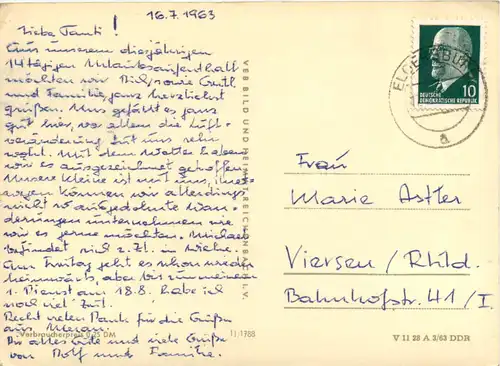 16.7.1963
Liebe Tanti!
Aus unserem diesjährigen
14 tägigen Urlaubsaufenthalt
möchten wir Dich, sowie Gretl
und Familie, ganz herzlichst
grüßen. Uns gefällt es ganz
gut hier, vor allem die Luft-
veränderung tut uns sehr
wohl. Mit dem Wetter haben
wir es ausgezeichnet getroffen.
Unsere Kleine ist mit uns,
wegen können wir allerdings
nicht so ausgedehnte Wan-
derungen unternehmen wie
wir es gerne möchten. Michael
befindet sich z. Zt. in
Am Freitag geht es schon wieder
heimwärts, aber bis zu meinem
1. Dienst am 18.8. habe ich
noch viel Zeit.
Recht vielen Dank für die Grüße
aus Meran.
Bis alles Gute und viele Grüße
von Rolf und Familie.
Verbraucherpreis 0,25 DM
1j/1788
VEB BILD UND HEIMAT REICHENBACH I. V.
10
DEUTSCHE
DEMOKRATISCHE REPUBLIK
a
Frau
Marie Astler
Viersen/Rhld.
Bahnhofstr. 41/I
V 11 28 A 3/63 DDR